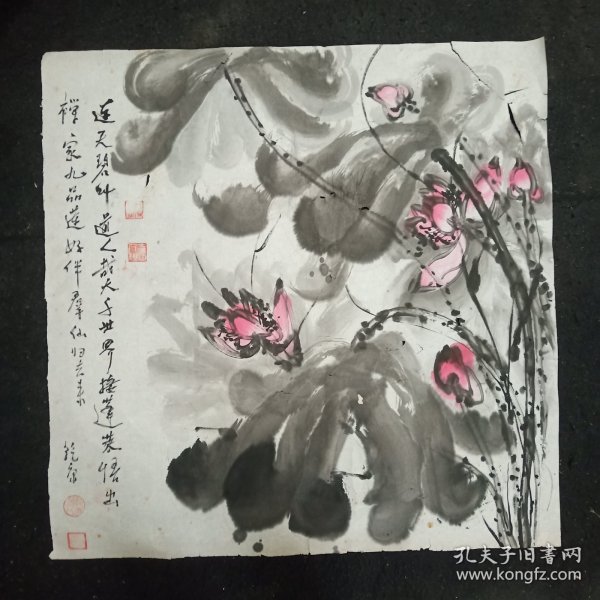 连天碧叶道人裁大千世界接莲裳悟出
禅家九品莲好伴群仙归去来
孔夫子旧书网
www.kongfz.com